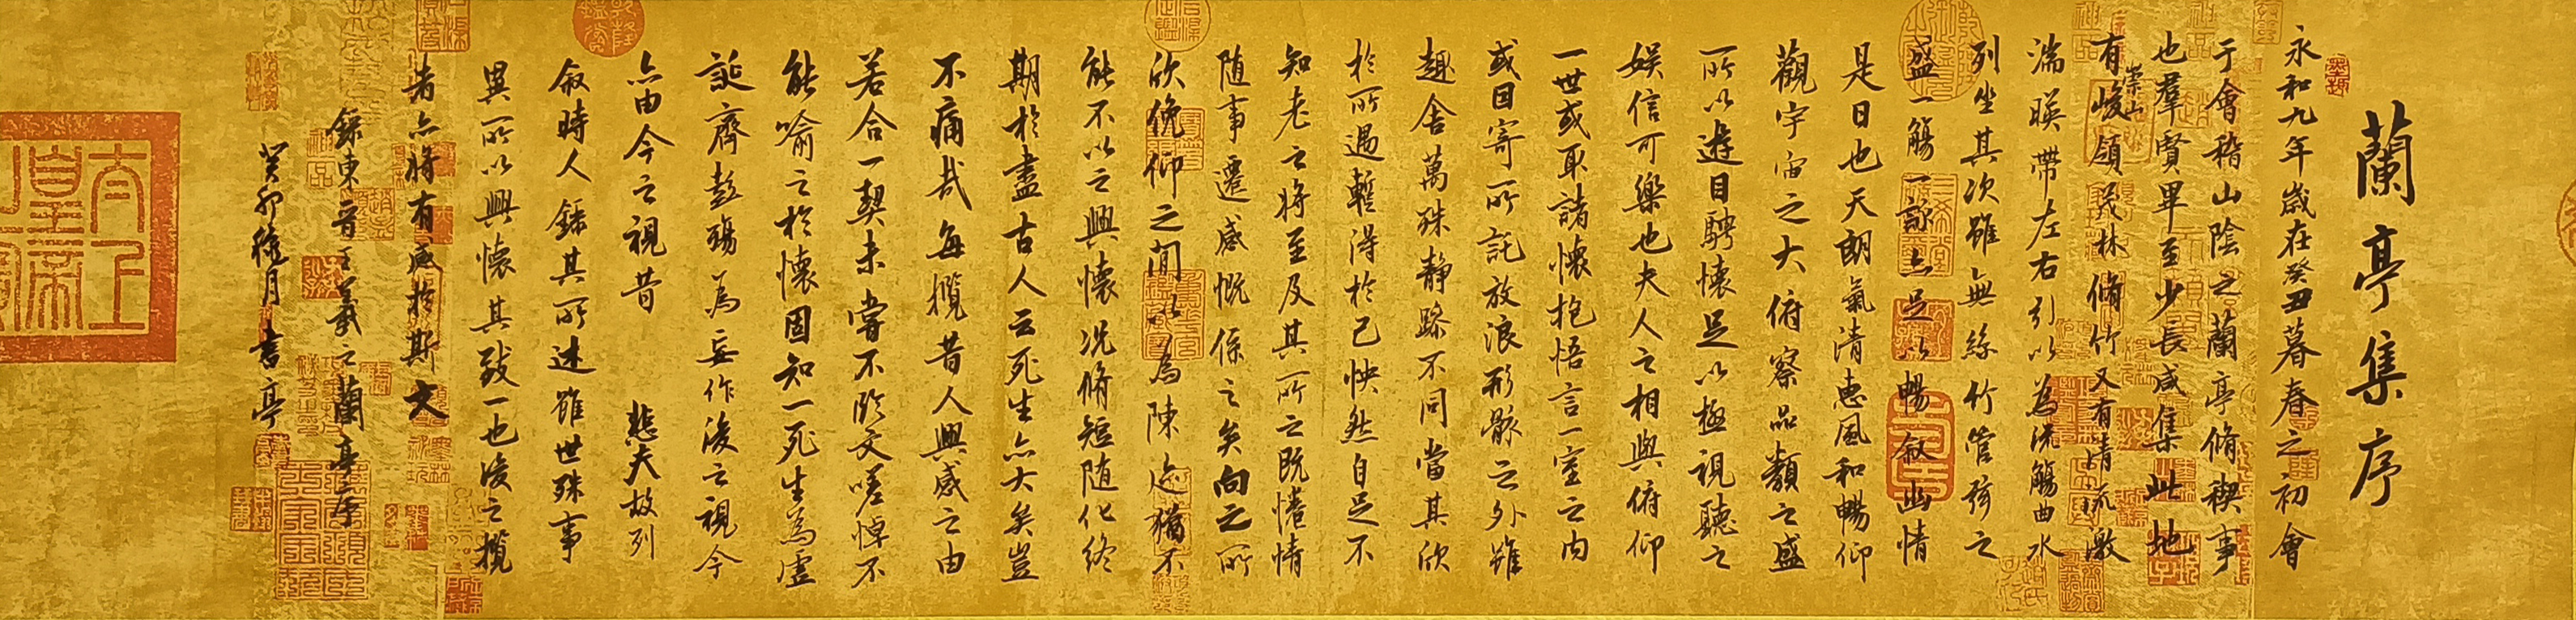 蘭亭集序
永和九年歲在癸丑暮春之初會
于會稽山陰之蘭亭脩禊事
也羣賢畢至少長咸集此地
有崇山峻領茂林脩竹又有清流激
湍暎帶左右引以為流觴曲水
列坐其次雖無絲竹管弦之
盛一觴一詠亦足以暢敘幽情
是日也天朗氣清惠風和暢仰
觀宇宙之大俯察品類之盛
所以遊目騁懷足以極視聽之
娛信可樂也夫人之相與俯仰
一世或取諸懷抱悟言一室之內
或因寄所託放浪形骸之外雖
趣舍萬殊静躁不同當其欣
於所遇暫得於己怏然自足不
知老之將至及其所之既惓情
随事遷感慨係之矣向之所
欣俛仰之間以為陳迹猶不
能不以之興懷況脩短随化終
期於盡古人云死生亦大矣豈
不痛哉每攬昔人興感之由
若合一契未嘗不臨文嗟悼不
能喻之於懷固知一死生為虛
誕齊彭殤為妄作後之視今
亦由今之視昔 悲夫故列
敘時人錄其所述雖世殊事
異所以興懷其致一也後之攬
者亦將有感於斯文
錄東晉王羲之蘭亭序
癸卯 月書亭
太上皇帝